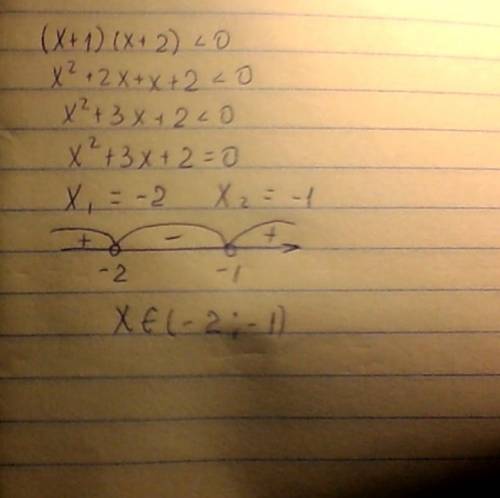 (x+1)(x+2)<0
x²+2x+x+2<0
x²+3x+2<0
x²+3x+2=0
x₁ = -2 x₂ = -1
+ - +
-2 -1
x∈(-2;-1)